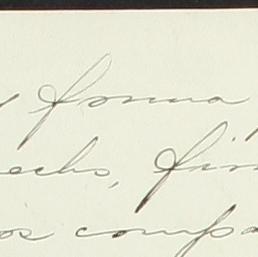 y forma
echo, fir
os compa